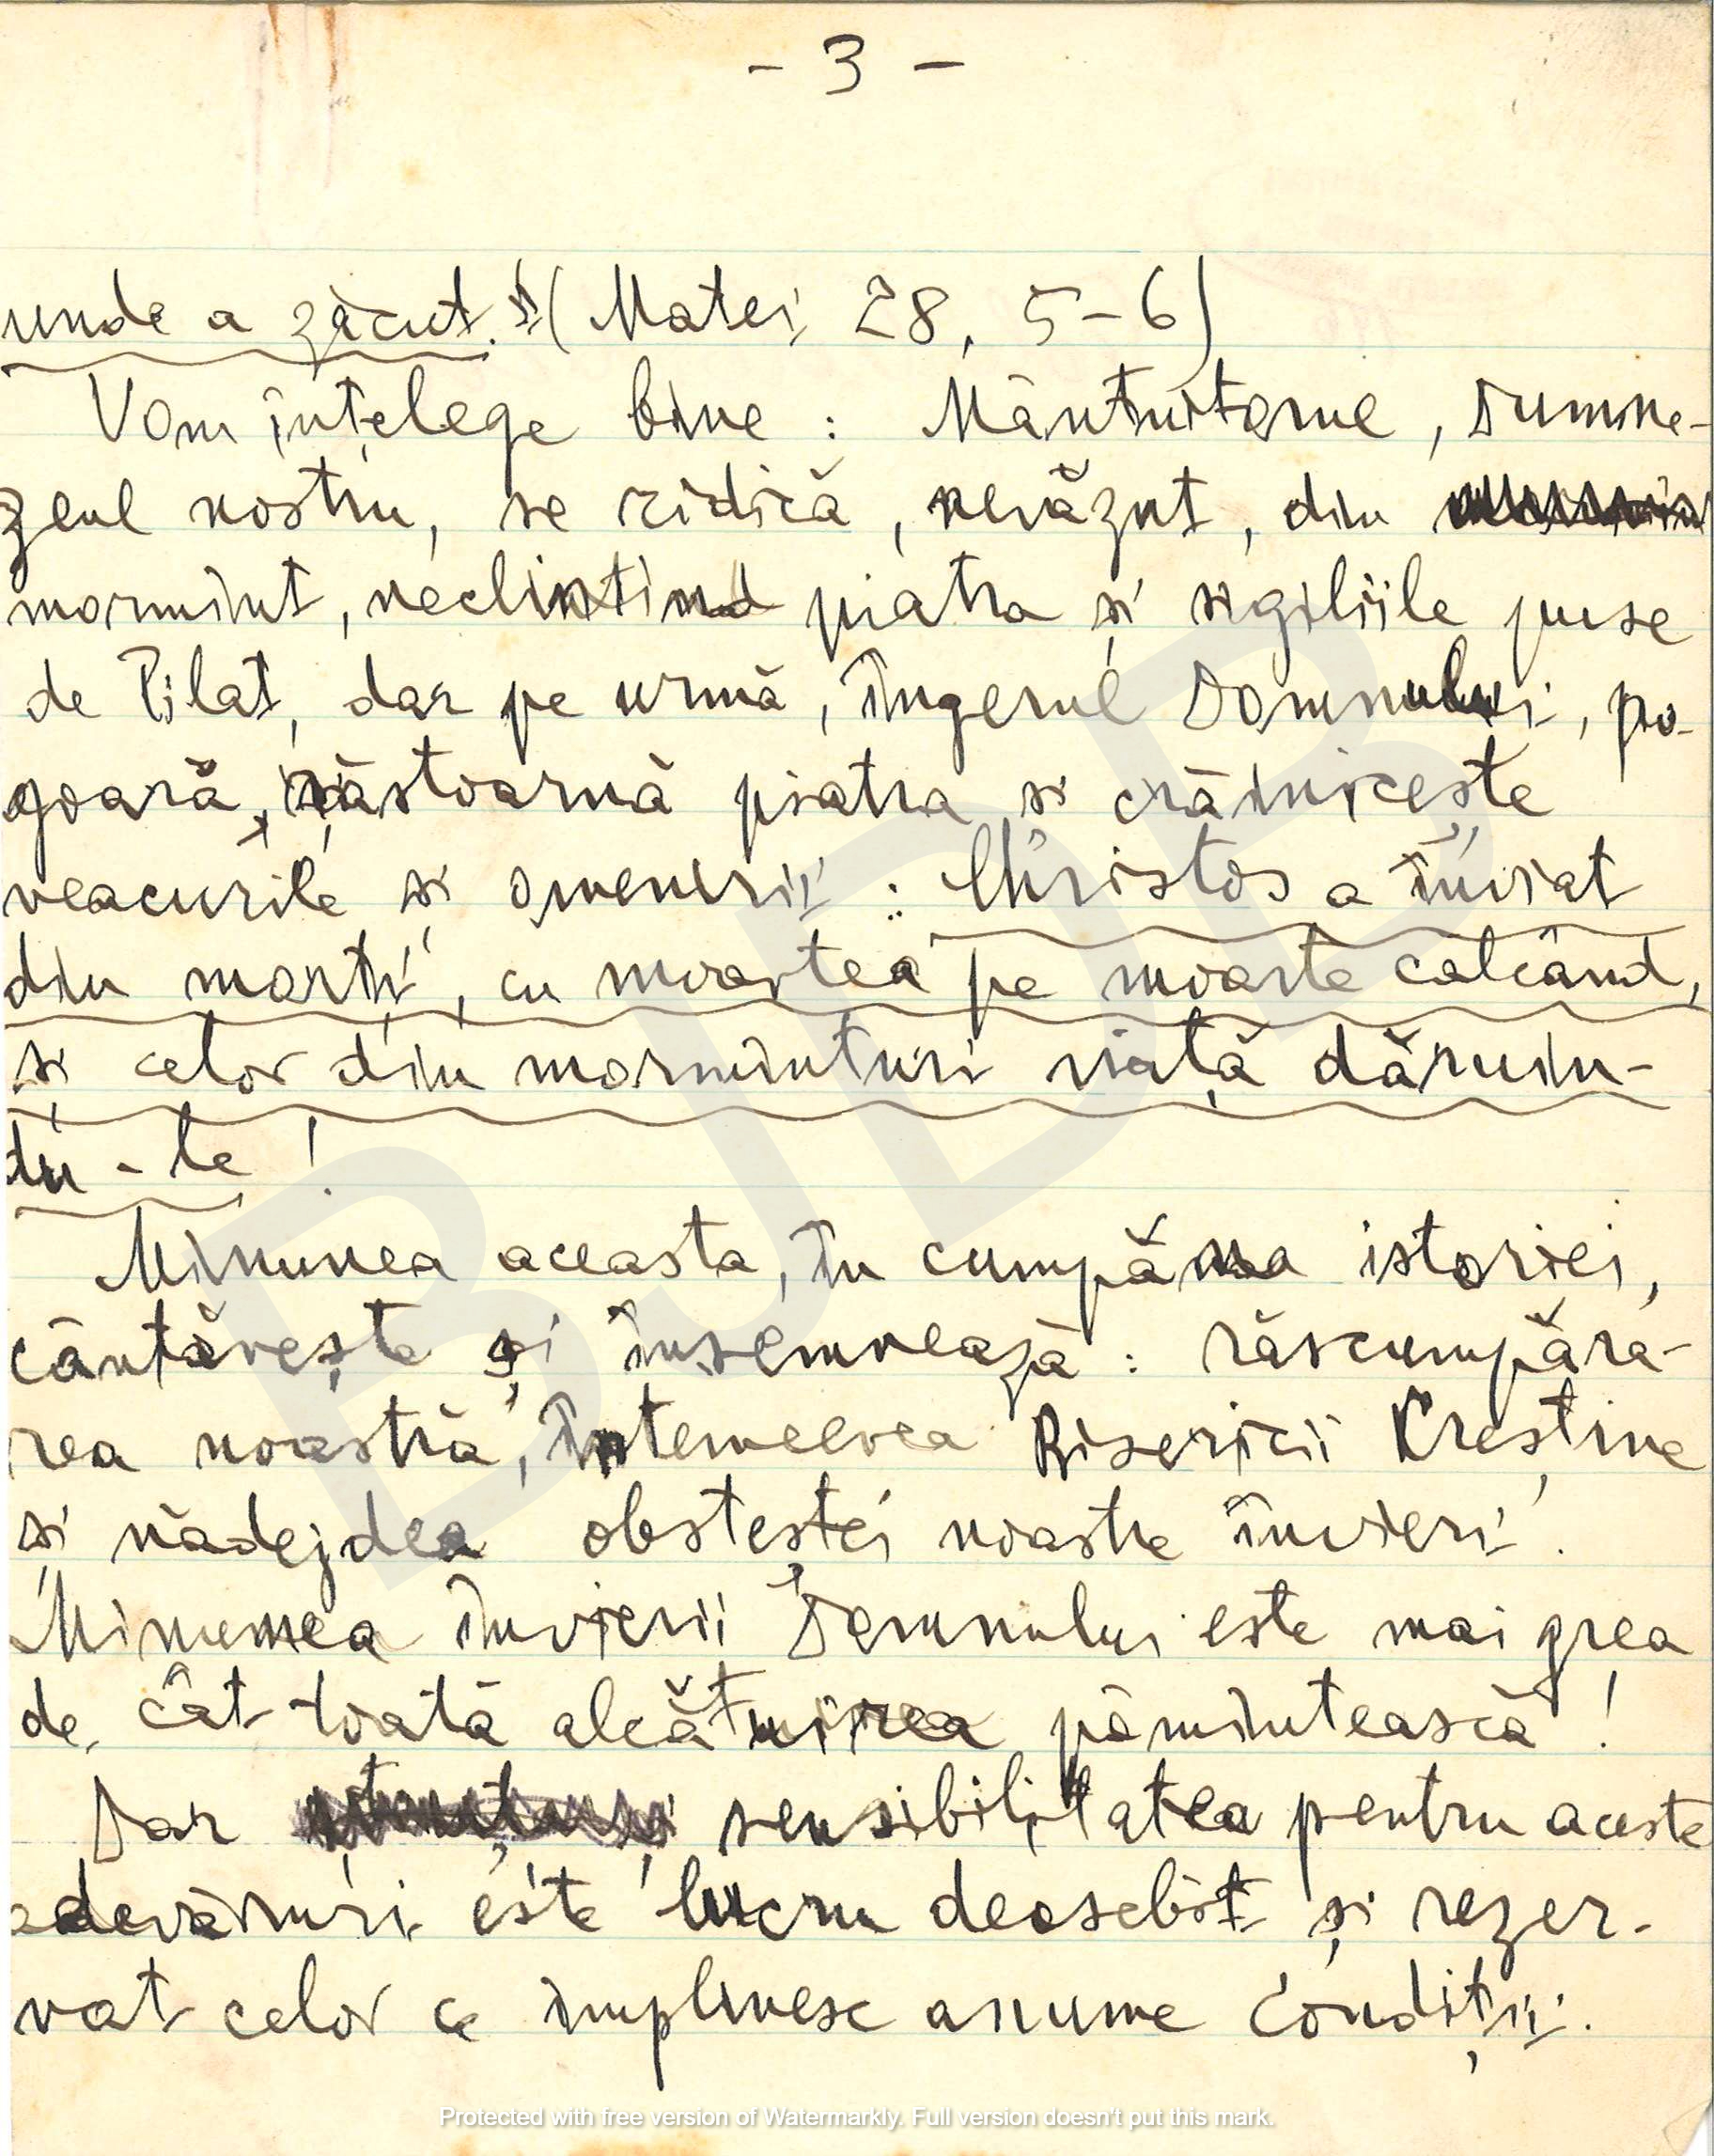 - 3 -
unde a zăcut." (Matei 28, 5-6)
Vom înțelege bine : Mântuitorul, Dumne-
zeul nostru, se ridică, nevăzut, din
mormînt, neclintind piatra și sigiliile puse
de Pilat, dar pe urmă, îngerul Domnului, po-
goară, răstoarnă piatra și crăinicește
veacurile și omenirii : Christos a înviat
din morți, cu moartea pe moarte călcând,
și celor din morminturi viață dăruin-
du-le !
Minunea aceasta, în cumpăna istoriei,
cântărește și însemnează : răscumpăra-
rea noastră, întemeerea Bisericii Creștine
și nădejdea obsteștei noastre învieri.
Minunea învierii Domnului este mai grea
de cât toată alcătuirea pămîntească !
Dar sensibilitatea pentru aceste
adevăruri este lucru deosebit și rezer-
vat celor ce împlinesc anume condiții.
BJDB
Protected with free version of Watermarkly. Full version doesn't put this mark.